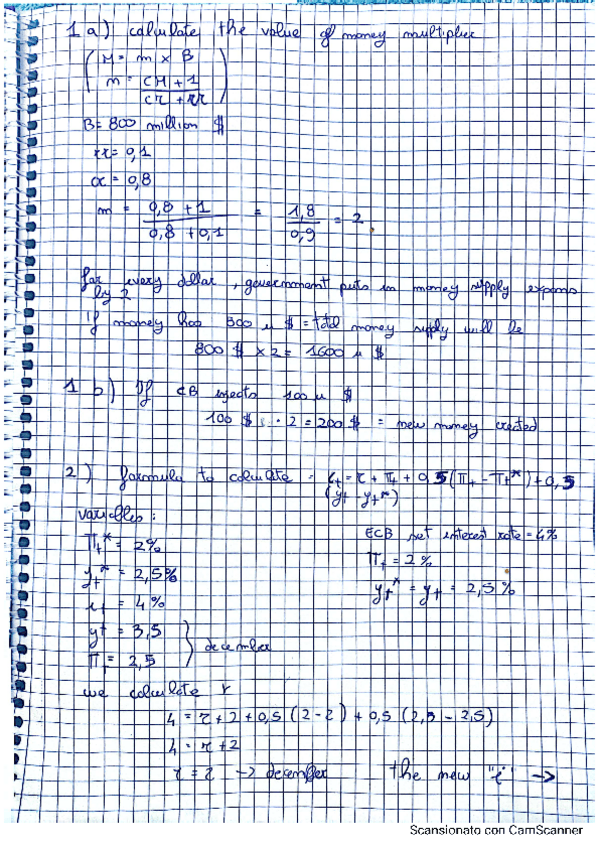 1 a) calculate the value of money multiplier
M = m x B
m = cr + 1
cr + rr
B = 800 million $
rr = 0,1
cr = 0,8
m = 0,8 + 1 = 1,8 = 2,
0,8 + 0,1 0,9
for every dollar, government puts in money supply expans
by 2
if money has 800 M $ = total money supply will be
800 $ x 2 = 1600 M $
1 b) If CB injects 100 M $
100 $ · 2 = 200 $ = new money created
2) formula to calculate = it = r + πt + 0,5 (πt - πt*) + 0,5
(yt - yt*)
variables:
ECB set interest rate = 4%
πt* = 2%
πt = 2%
yt* = 2,5%
yt* = yt = 2,5%
it = 4%
yt = 3,5
december
πt = 2,5
we calculate r
4 = r + 2 + 0,5 (2 - 2) + 0,5 (2,5 - 2,5)
4 = r + 2
r = 2 -> december the new "i" ->
Scansionato con CamScanner